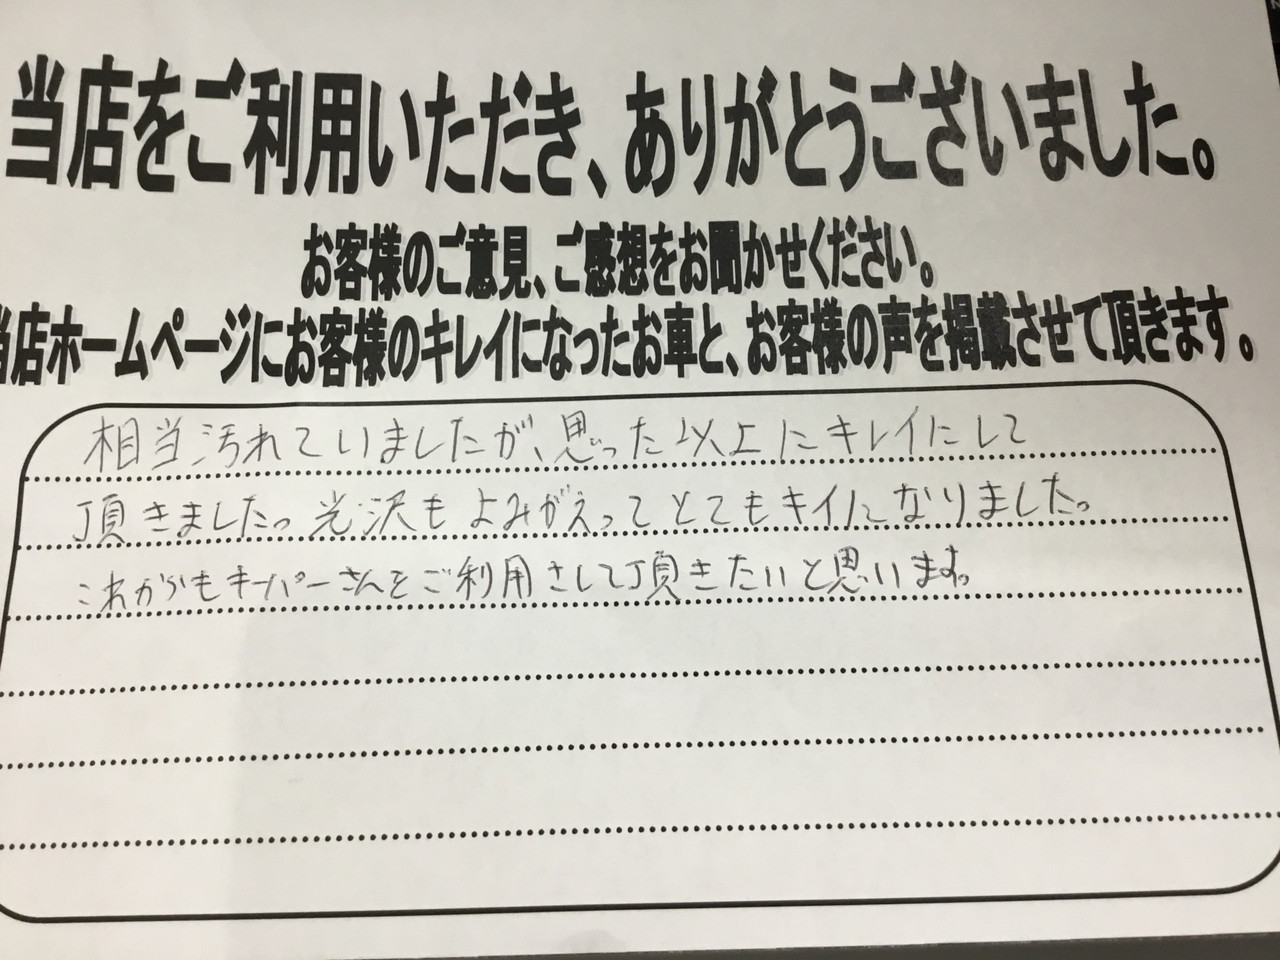 当店をご利用いただき、ありがとうございました。
お客様のご意見、ご感想をお聞かせください。
当店ホームページにお客様のキレイになったお車と、お客様の声を掲載させて頂きます。
相当汚れていましたが、思った以上にキレイにして
頂きました。光沢もよみがえってとてもキイになりました。
これからもキーパーさんをご利用さして頂きたいと思います。